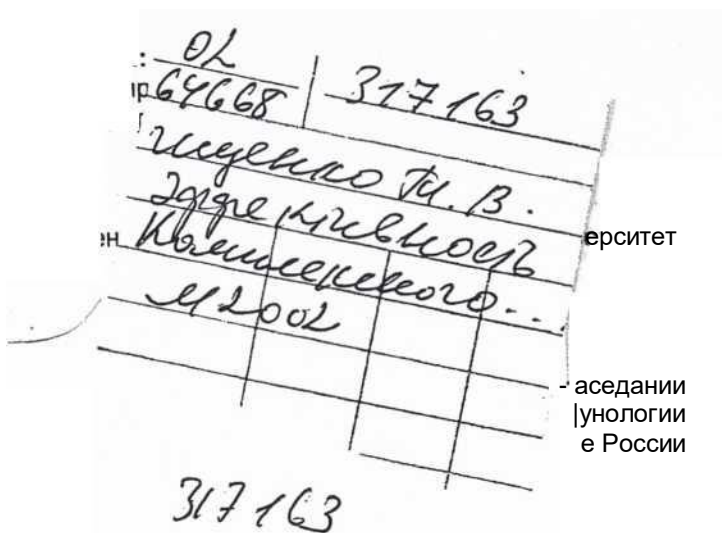 : 02
ıр 64668 317163
ищенко Т. В.
Эффективность
ен Комплексного...
ерситет
М 2002
- аседании
|унологии
е России
317163